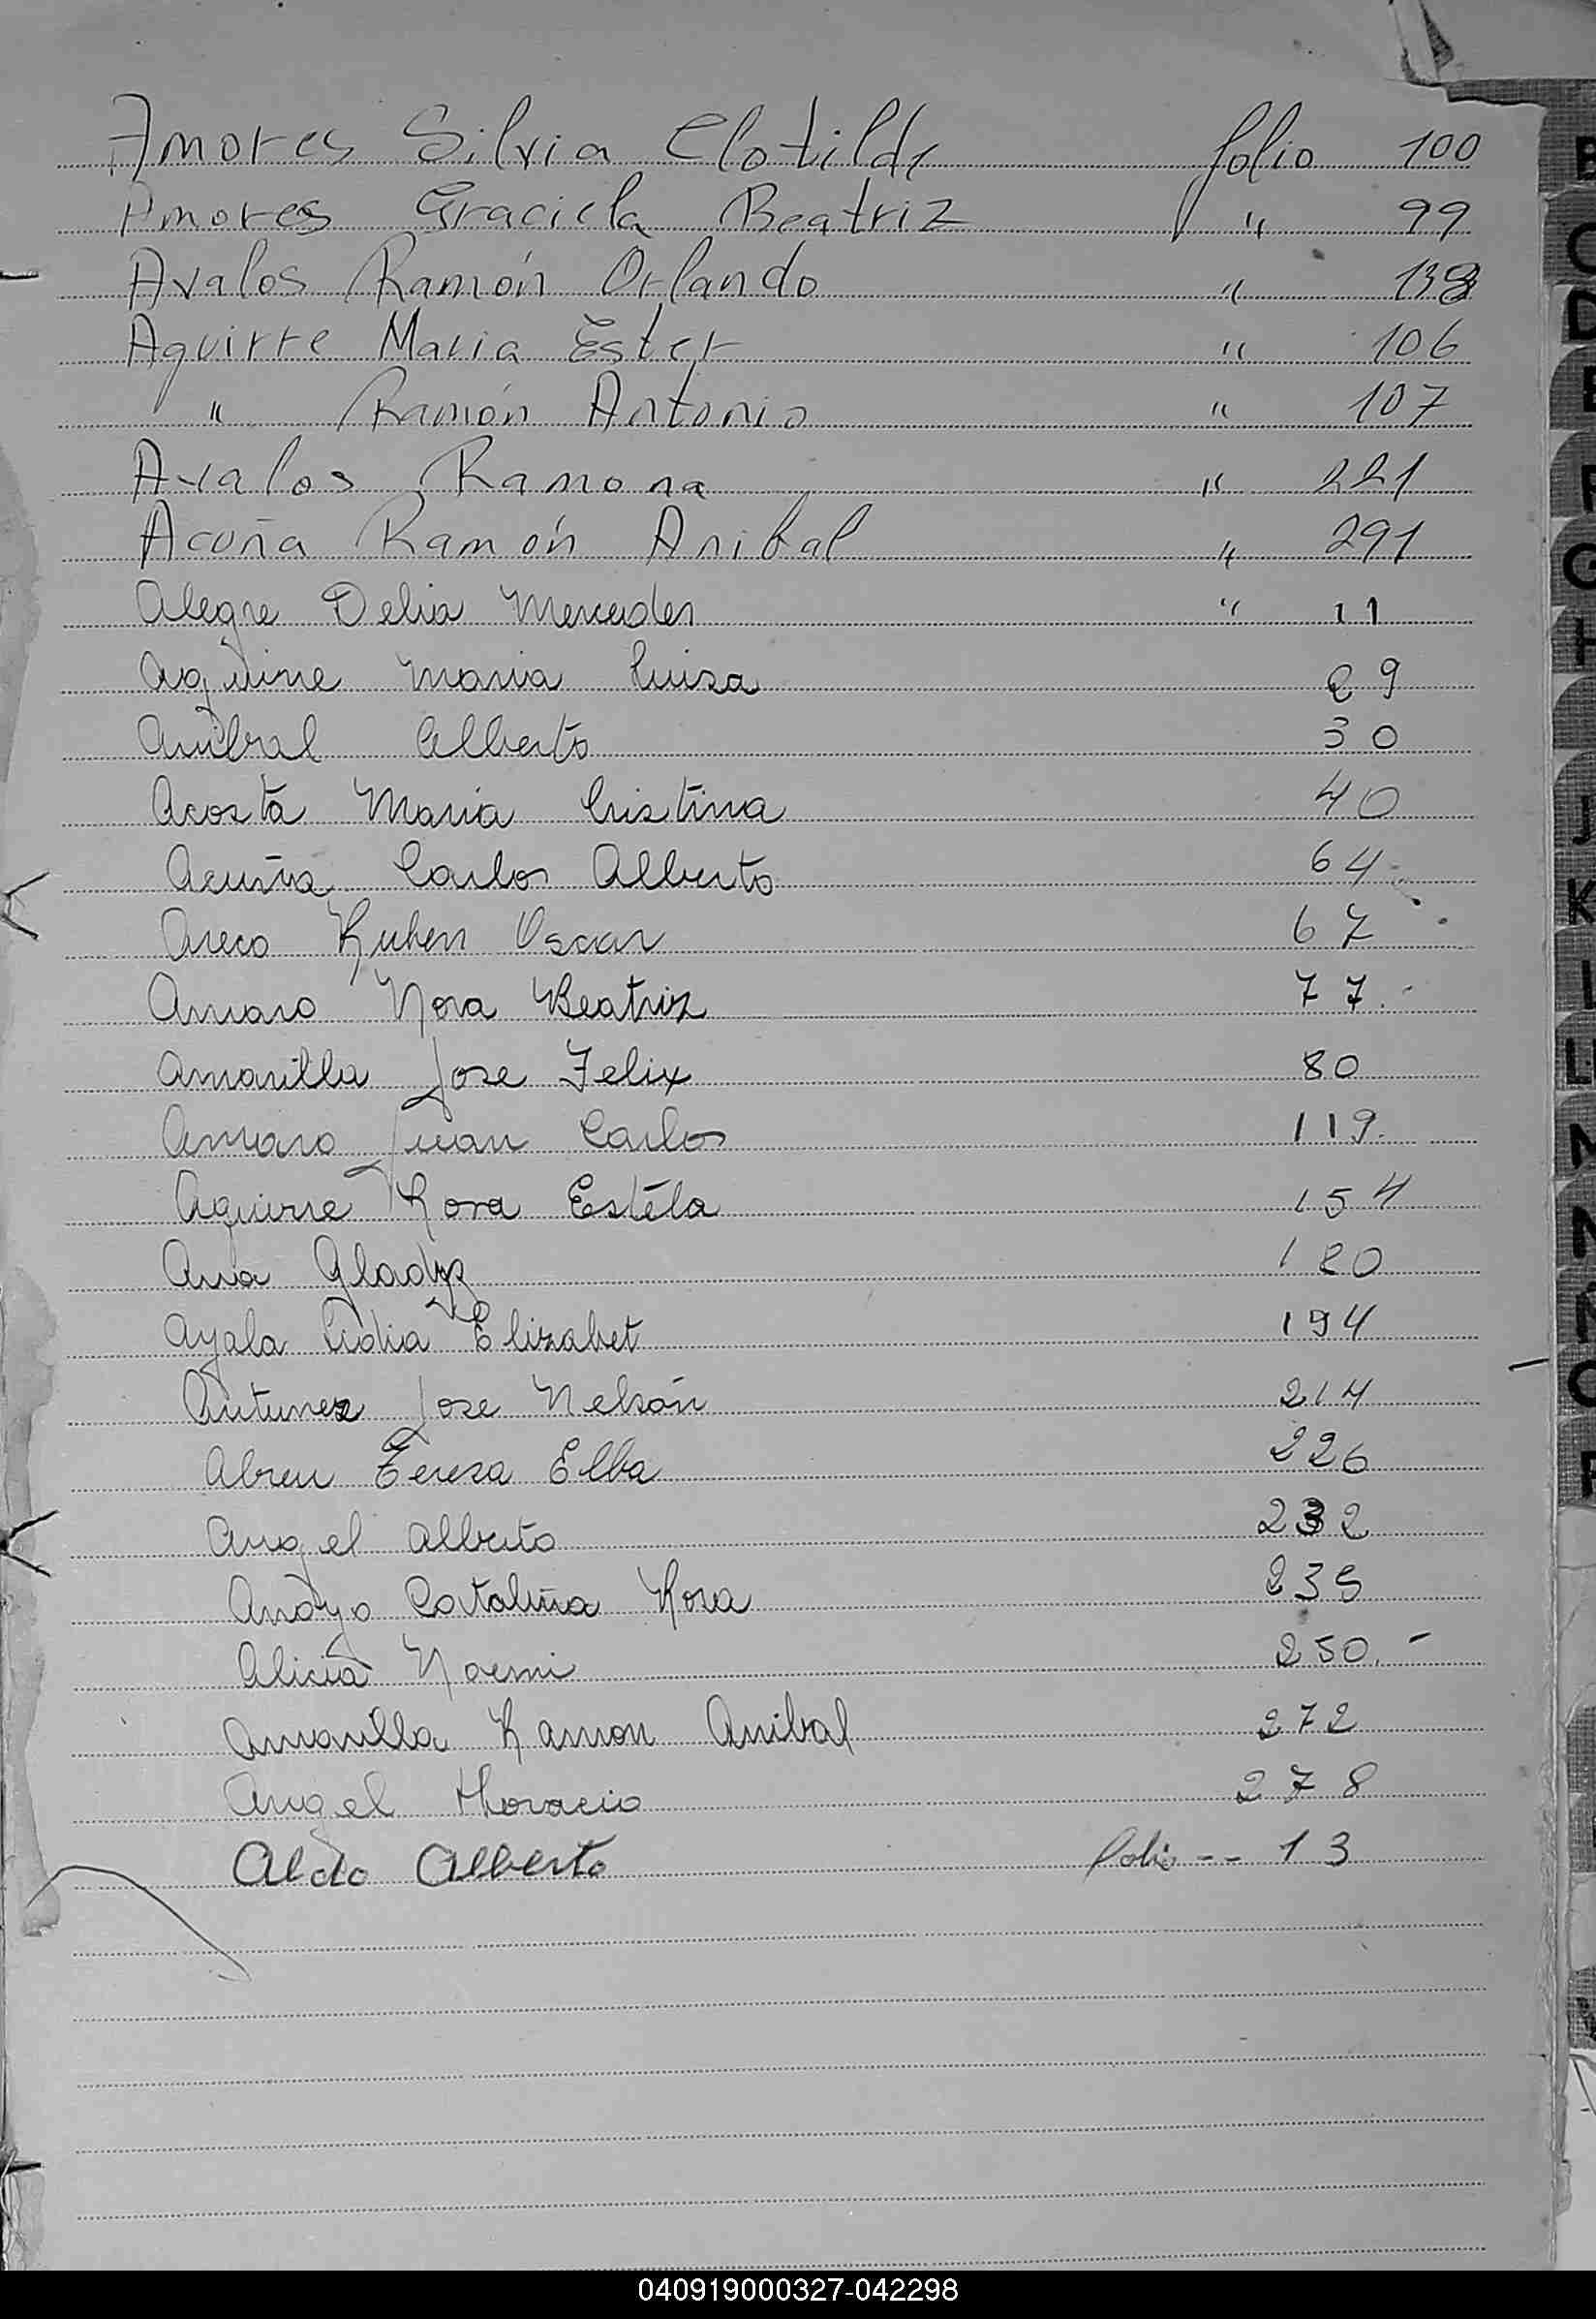 Amores Silvia Clotilde folio 100
Amores Graciela Beatriz " 99
Avalos Ramón Orlando " 138
Aguirre Maria Ester " 106
" Ramón Antonio " 107
Avalos Ramona " 221
Acuña Ramón Anibal " 291
Alegre Delia Mercedes " 11
Aguirre Maria Luisa 29
Anibal Alberto 30
Acosta Maria Cristina 40
Acuña Carlos Alberto 64
Areco Ruben Oscar 67
Amaro Nora Beatriz 77.-
Amarilla Jose Felix 80
Amaro Juan Carlos 119.
Aguirre Rosa Estela 154
Gladyz 180
Ayala Lidia Elizabet 194
Antunez Jose Nelsón 214
Abreu Teresa Elba 226
Angel Alberto 232
Catalina Rosa 239
Alicia Noemi 250.-
Amarilla Ramon Anibal 272
Angel Horacio 278
Aldo Alberto folio -- 13
B
C
D
E
F
G
H
J
K
L
N
Ñ
O
P
040919000327-042298